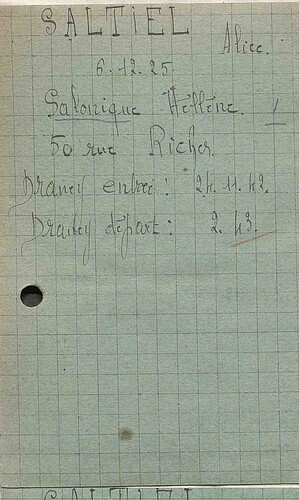 SALTIEL Alice.
6.12.25.
Salonique Hellène. 1
50 rue Richer.
Drancy entrée : 24.11.42.
Drancy départ : 2.43.